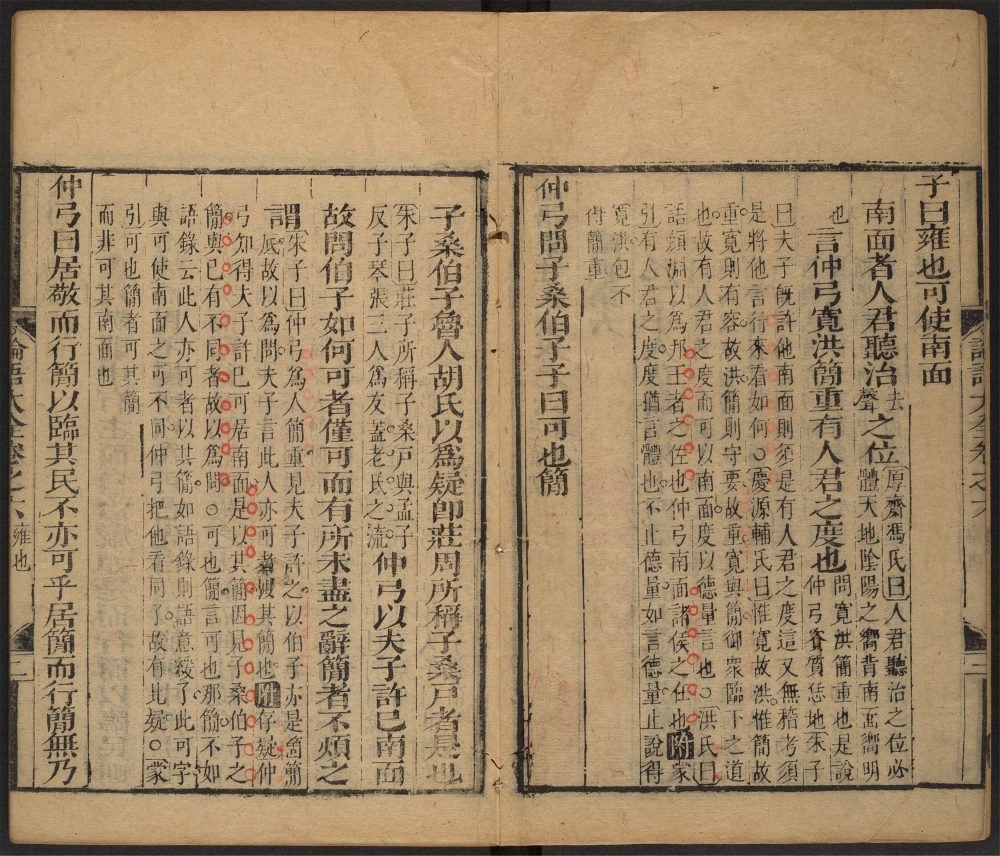 子曰雍也可使南面
南面者人君聽治去聲之位厚齋馮氏曰人君聽治之位必
體天地陰陽之嚮背南面嚮明
也言仲弓寬洪簡重有人君之度也問寬洪簡重也是說
仲弓資質恁地朱子
曰夫子既許他南面則須是有人君之度這又無稽考須
是將他言行來看如何○慶源輔氏曰惟寬故洪惟簡故
重寬則有容故洪簡則守要故重寬與簡御衆臨下之道
也故有人君之度而可以南面度以德量言也○洪氏曰
語顔淵以爲邦王者之佐也仲弓南面諸侯之任也附蒙
引有人君之度度猶言體也不止德量如言德量止說得
寬洪包不
得簡重
仲弓問子桑伯子子曰可也簡
子桑伯子魯人胡氏以爲疑卽莊周所稱子桑戶者是也
朱子曰莊子所稱子桑戶與孟子
反子琴張三人爲友蓋老氏之流仲弓以夫子許已南面
故問伯子如何可者僅可而有所未盡之辭簡者不煩之
謂朱子曰仲弓爲人簡重見夫子許之以伯子亦是箇簡
底故以爲問夫子言此人亦可者以其簡也附存疑仲
弓知得夫子許已可居南面是以其簡因見子桑伯子之
簡與已有不同者故以爲問○可也簡言可也那簡不如
語錄云此人亦可者以其簡如語錄則語意殺了此可字
與可使南面之可不同仲弓把他看同了故有此疑○蒙
引可也簡者可其簡
而非可其南面也
仲弓曰居敬而行簡以臨其民不亦可乎居簡而行簡無乃
論語大全卷之六 雍也 二